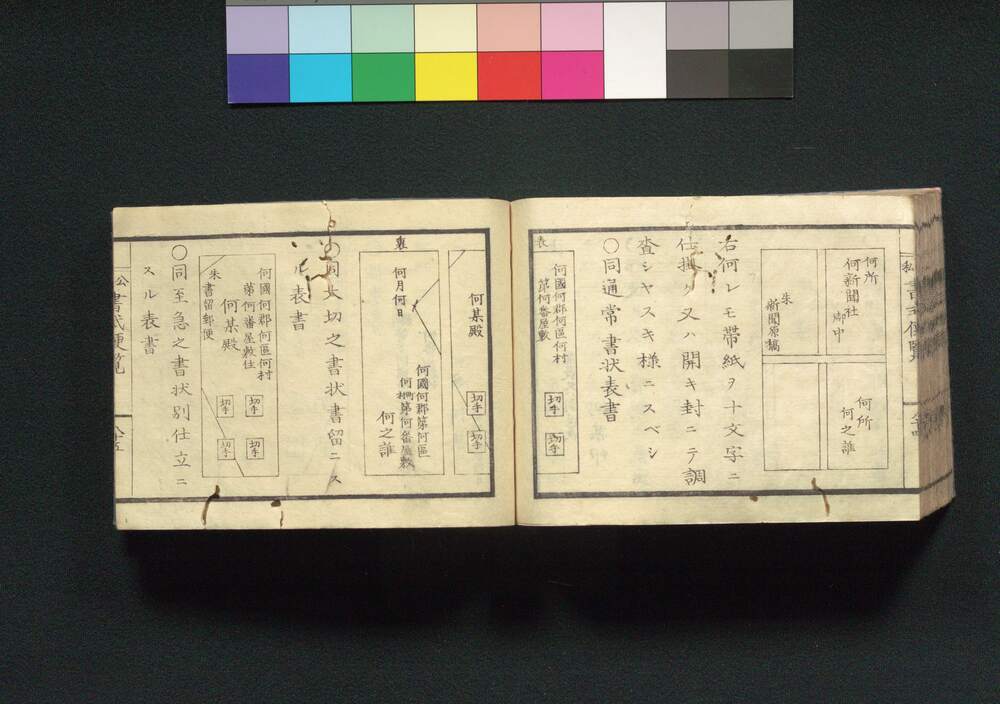 何所
何新聞社
御中
朱
新聞原稿
何所
何之誰
右何レモ帶紙ヲ十文字ニ
仕掛ケ又ハ開キ封ニテ調
査シヤスキ様ニスベシ
〇同通常書状表書
表
何國何郡何區何村
第何番屋敷
切手
切手
何某殿
切手
切手
裏
何月何日
何國何郡第何區
何村第何番屋敷
何之誰
〇同大切之書状書留ニス
ル表書
何國何郡何區何村
第何番屋敷住
何某殿
朱書留郵便
切手
切手
切手
切手
〇同至急之書状別仕立ニ
スル表書
公
書式便覧
八十五